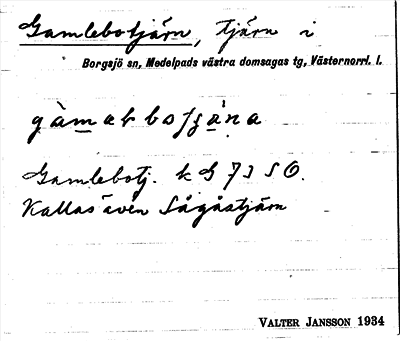 Gamlebotjärn, tjärn i
Borgsjö sn, Medelpads västra domsagas tg, Västernorrl. l.
Gamlebotj. k G 73 S O.
Kallas även Sågåstjärn
VALTER JANSSON 1934